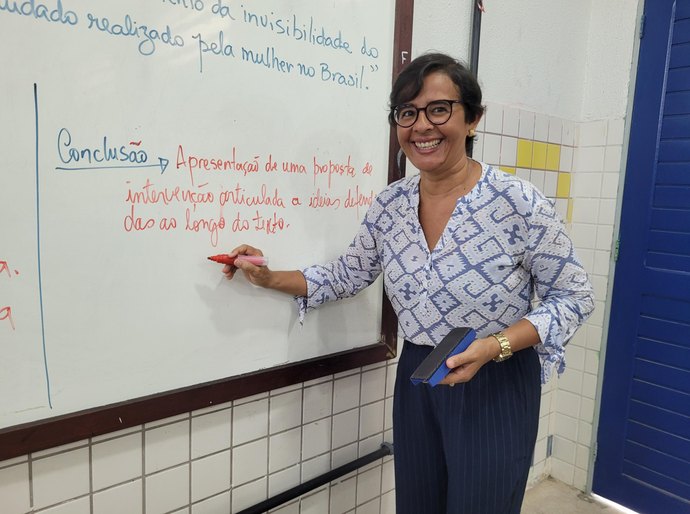 nto da invisibilidade do
uidado realizado pela mulher no Brasil."
Conclusão → Apresentação de uma proposta de
intervenção articulada a ideias defendi
das ao longo do texto.
a.
a